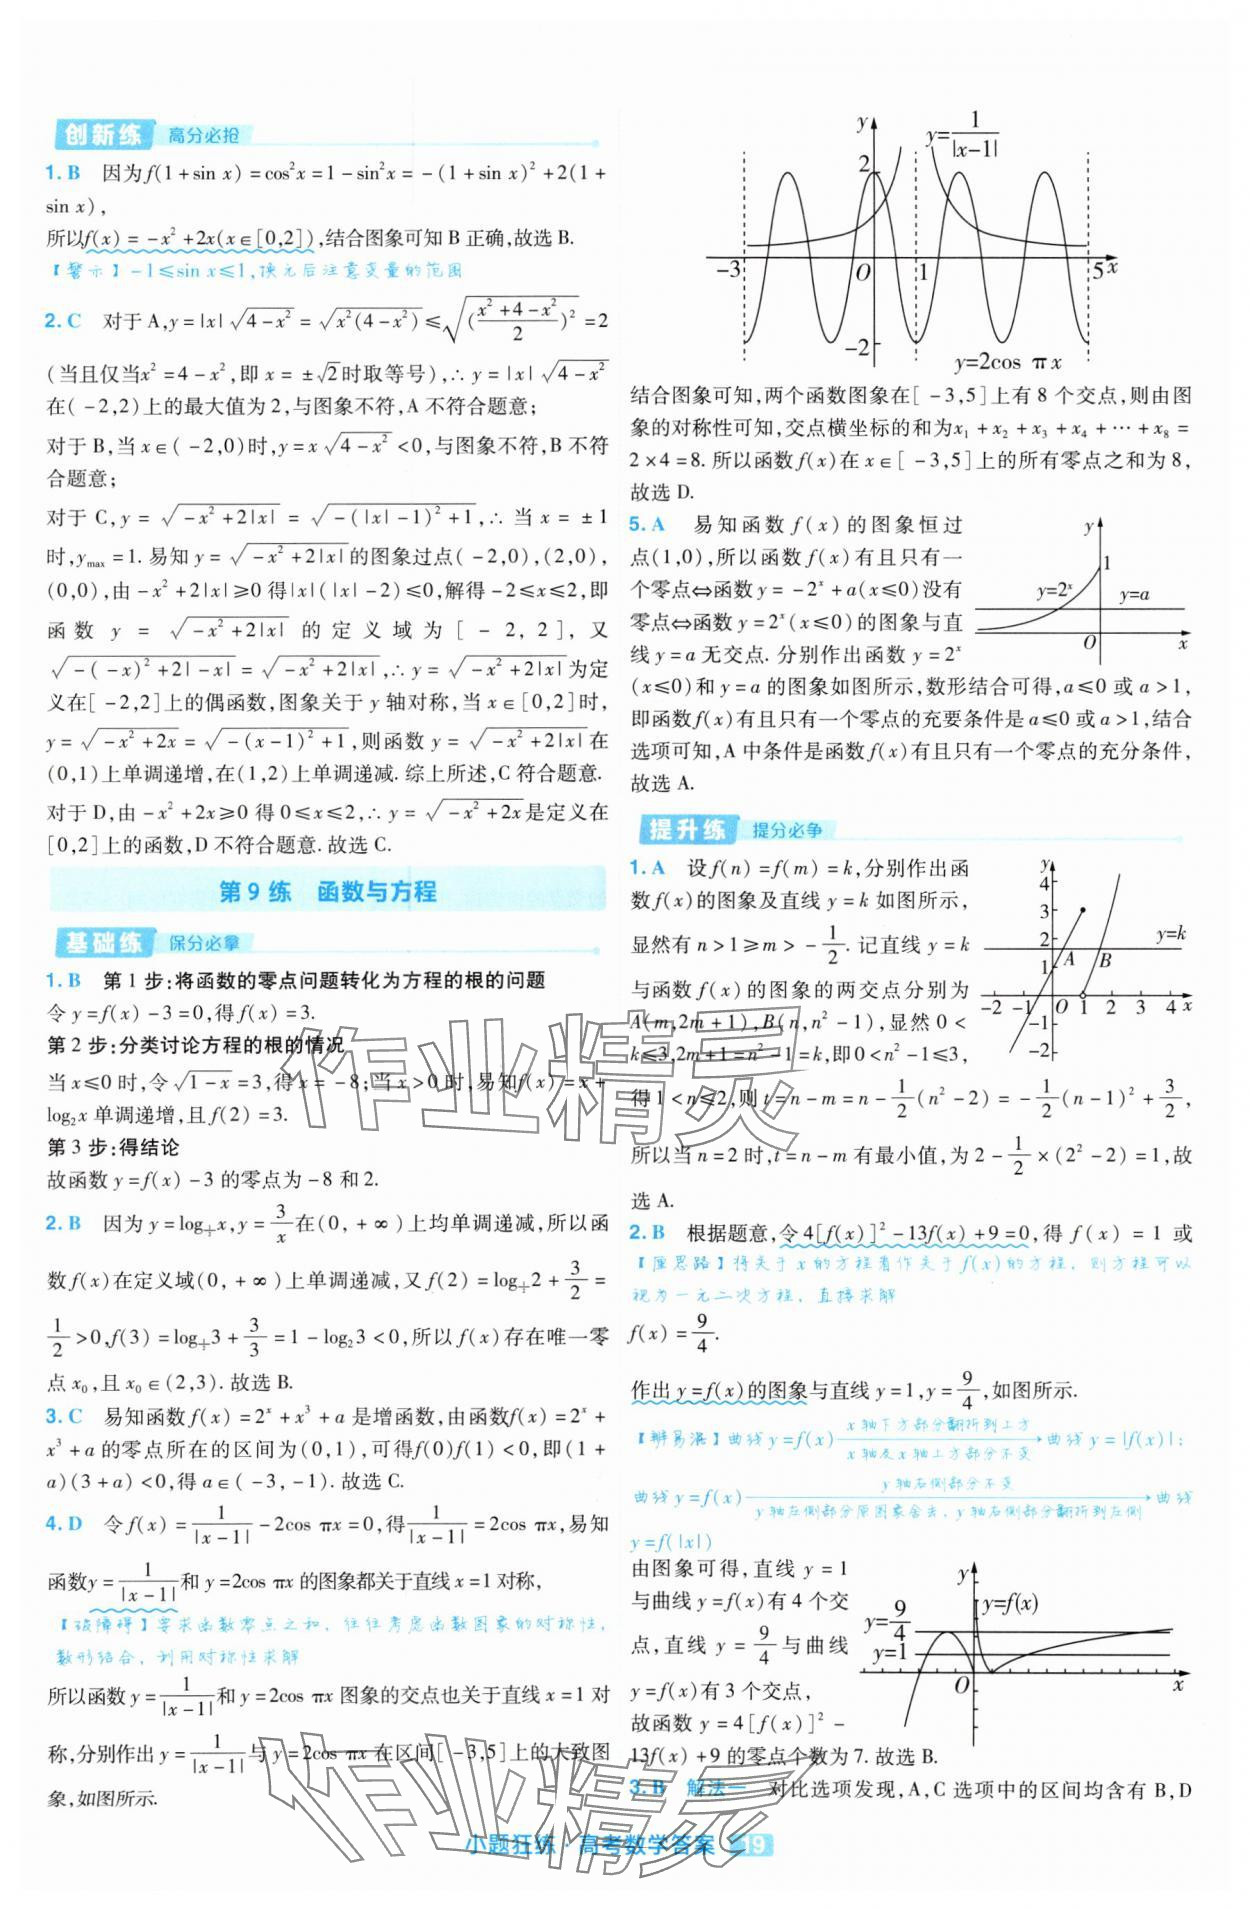 创新练 高分必抢
1. B 因为f(1+sin x)=cos²x=1-sin²x=-(1+sin x)²+2(1+
sin x),
所以f(x)=-x²+2x(x∈[0,2]),结合图象可知 B 正确,故选 B.
【警示】-1≤sin x≤1,换元后注意变量的范围
2. C 对于 A,y=|x|√(4-x²)=√(x²(4-x²))≤√(((x²+4-x²)/2)²)=2
(当且仅当x²=4-x²,即 x=±√2时取等号),∴y=|x|√(4-x²)
在(-2,2)上的最大值为2,与图象不符,A 不符合题意;
对于 B,当 x∈(-2,0)时,y=x√(4-x²)<0,与图象不符,B 不符
合题意;
对于 C,y=√(-x²+2|x|)=√(-(|x|-1)²+1),∴当 x=±1
时,ymax=1.易知 y=√(-x²+2|x|)的图象过点(-2,0),(2,0),
(0,0),由-x²+2|x|≥0 得|x|(|x|-2)≤0,解得-2≤x≤2,即
函数 y=√(-x²+2|x|)的定义域为[-2,2],又
√(-(-x)²+2|-x|)=√(-x²+2|x|),∴y=√(-x²+2|x|)为定
义在[-2,2]上的偶函数,图象关于 y 轴对称,当 x∈[0,2]时,
y=√(-x²+2x)=√(-(x-1)²+1),则函数 y=√(-x²+2|x|)在
(0,1)上单调递增,在(1,2)上单调递减.综上所述,C 符合题意.
对于 D,由-x²+2x≥0 得 0≤x≤2,∴y=√(-x²+2x)是定义在
[0,2]上的函数,D 不符合题意.故选 C.
第 9 练 函数与方程
基础练 保分必拿
1. B 第 1 步:将函数的零点问题转化为方程的根的问题
令 y=f(x)-3=0,得f(x)=3.
第 2 步:分类讨论方程的根的情况
当 x≤0 时,令√(1-x)=3,得 x=-8;当 x>0 时,易知f(x)=x+
log₂x 单调递增,且f(2)=3.
第 3 步:得结论
故函数 y=f(x)-3 的零点为-8 和 2.
2. B 因为 y=log_(1/2)x,y=3/x在(0,+∞)上均单调递减,所以函
数f(x)在定义域(0,+∞)上单调递减,又f(2)=log_(1/2)2+3/2=
1/2>0,f(3)=log_(1/2)3+3/3=1-log₂3<0,所以f(x)存在唯一零
点 x₀,且 x₀∈(2,3).故选 B.
3. C 易知函数f(x)=2ˣ+x³+a 是增函数,由函数f(x)=2ˣ+
x³+a 的零点所在的区间为(0,1),可得f(0)f(1)<0,即(1+
a)(3+a)<0,得 a∈(-3,-1).故选 C.
4. D 令f(x)=1/|x-1|-2cos πx=0,得1/|x-1|=2cos πx,易知
函数y=1/|x-1|和 y=2cos πx 的图象都关于直线 x=1 对称,
【破障碍】要求函数零点之和，往往考虑函数图象的对称性，
数形结合，利用对称性求解
所以函数 y=1/|x-1|和 y=2cos πx 图象的交点也关于直线 x=1 对
称,分别作出 y=1/|x-1|与 y=2cos πx 在区间[-3,5]上的大致图
象,如图所示.
y
y=1/|x-1|
2
-3
O
1
5
x
-2
y=2cos πx
结合图象可知,两个函数图象在[-3,5]上有 8 个交点,则由图
象的对称性可知,交点横坐标的和为x₁+x₂+x₃+x₄+⋯+x₈=
2×4=8.所以函数f(x)在 x∈[-3,5]上的所有零点之和为 8,
故选 D.
5. A 易知函数 f(x)的图象恒过
点(1,0),所以函数f(x)有且只有一
个零点⇔函数 y=-2ˣ+a(x≤0)没有
零点⇔函数 y=2ˣ(x≤0)的图象与直
线 y=a 无交点.分别作出函数 y=2ˣ
y
1
y=2ˣ
y=a
O
x
(x≤0)和 y=a 的图象如图所示,数形结合可得,a≤0 或 a>1,
即函数f(x)有且只有一个零点的充要条件是 a≤0 或 a>1,结合
选项可知,A 中条件是函数f(x)有且只有一个零点的充分条件,
故选 A.
提升练 提分必争
1. A 设 f(n)=f(m)=k,分别作出函
数f(x)的图象及直线 y=k 如图所示,
显然有 n>1≥m>-1/2.记直线 y=k
与函数 f(x)的图象的两交点分别为
A(m,2m+1),B(n,n²-1),显然 0<
k≤3,2m+1=n²-1=k,即0<n²-1≤3,
y
4
3
2
y=k
1
A
B
-2
-1
O
1
2
3
4
x
-1
-2
得 1<n≤2,则 t=n-m=n-1/2(n²-2)=-1/2(n-1)²+3/2,
所以当 n=2 时,t=n-m 有最小值,为 2-1/2×(2²-2)=1,故
选 A.
2. B 根据题意,令 4[f(x)]²-13f(x)+9=0,得 f(x)=1 或
【厘思路】将关于 x 的方程看作关于 f(x)的方程，则方程可以
视为一元二次方程，直接求解
f(x)=9/4.
作出 y=f(x)的图象与直线 y=1,y=9/4,如图所示.
【辨易混】曲线 y=f(x) x 轴下方部分翻折到上方 x 轴及 x 轴上方部分不变→曲线 y=|f(x)|;
曲线 y=f(x) y 轴右侧部分不变 y 轴左侧部分原图象舍去，y 轴右侧部分翻折到左侧→曲线
y=f(|x|)
由图象可得,直线 y=1
与曲线 y=f(x)有 4 个交
点,直线 y=9/4 与曲线
y=f(x)有 3 个交点,
故函数 y=4[f(x)]²-
y
y=f(x)
y=9/4
y=1
O
x
13f(x)+9 的零点个数为 7.故选 B.
3. B 解法一 对比选项发现,A,C 选项中的区间均含有 B,D
作业精灵
作业精灵
小题狂练·高考数学答案 19